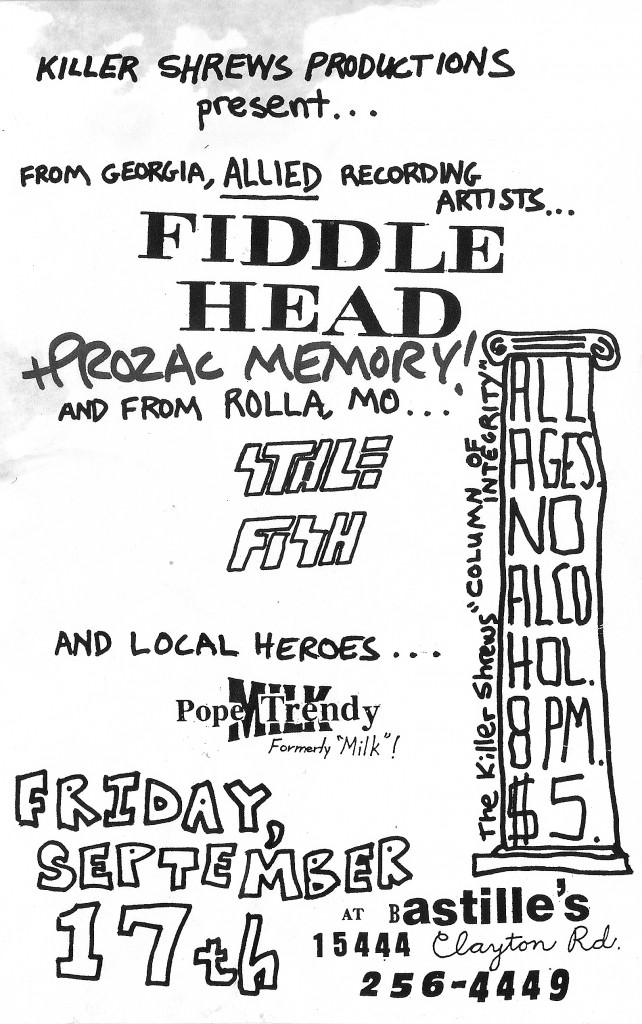 KILLER SHREWS PRODUCTIONS
present...
FROM GEORGIA, ALLIED RECORDING
ARTISTS...
FIDDLE
HEAD
+PROZAC MEMORY!
AND FROM ROLLA, MO...
STALE
FISH
AND LOCAL HEROES...
MILK
Pope Trendy
Formerly "Milk"!
The Killer Shrews "COLUMN OF
INTEGRITY"
ALL
AGES.
NO
ALCO
HOL.
8 PM.
$5.
FRIDAY,
SEPTEMBER
17th
AT Bastille's
15444 Clayton Rd.
256-4449